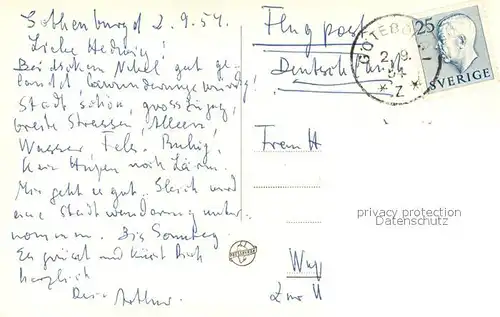 Gothenburg d 2.9.54.
Liebe Hedwig!
Bei dichem Nebel gut ge-
landet, bewundernswürdig
Stadt schön, grosszügig,
breite Strassen, Alleen,
Wasser Fels. Ruhig,
kein Hupen noch Lärm.
Mir geht es gut. Gleich wird
eine Stadtwanderung unter-
nommen. Bis Sonntag
Es grüsst und küsst Dich
herzlich
Dein Arthur
Flugpost
Deutschland
GÖTEBORG 1
2. 9.
54
* Z *
25
SVERIGE
Frau H
privacy protection
AUTOBEDARF.DE
Wup
Zur H